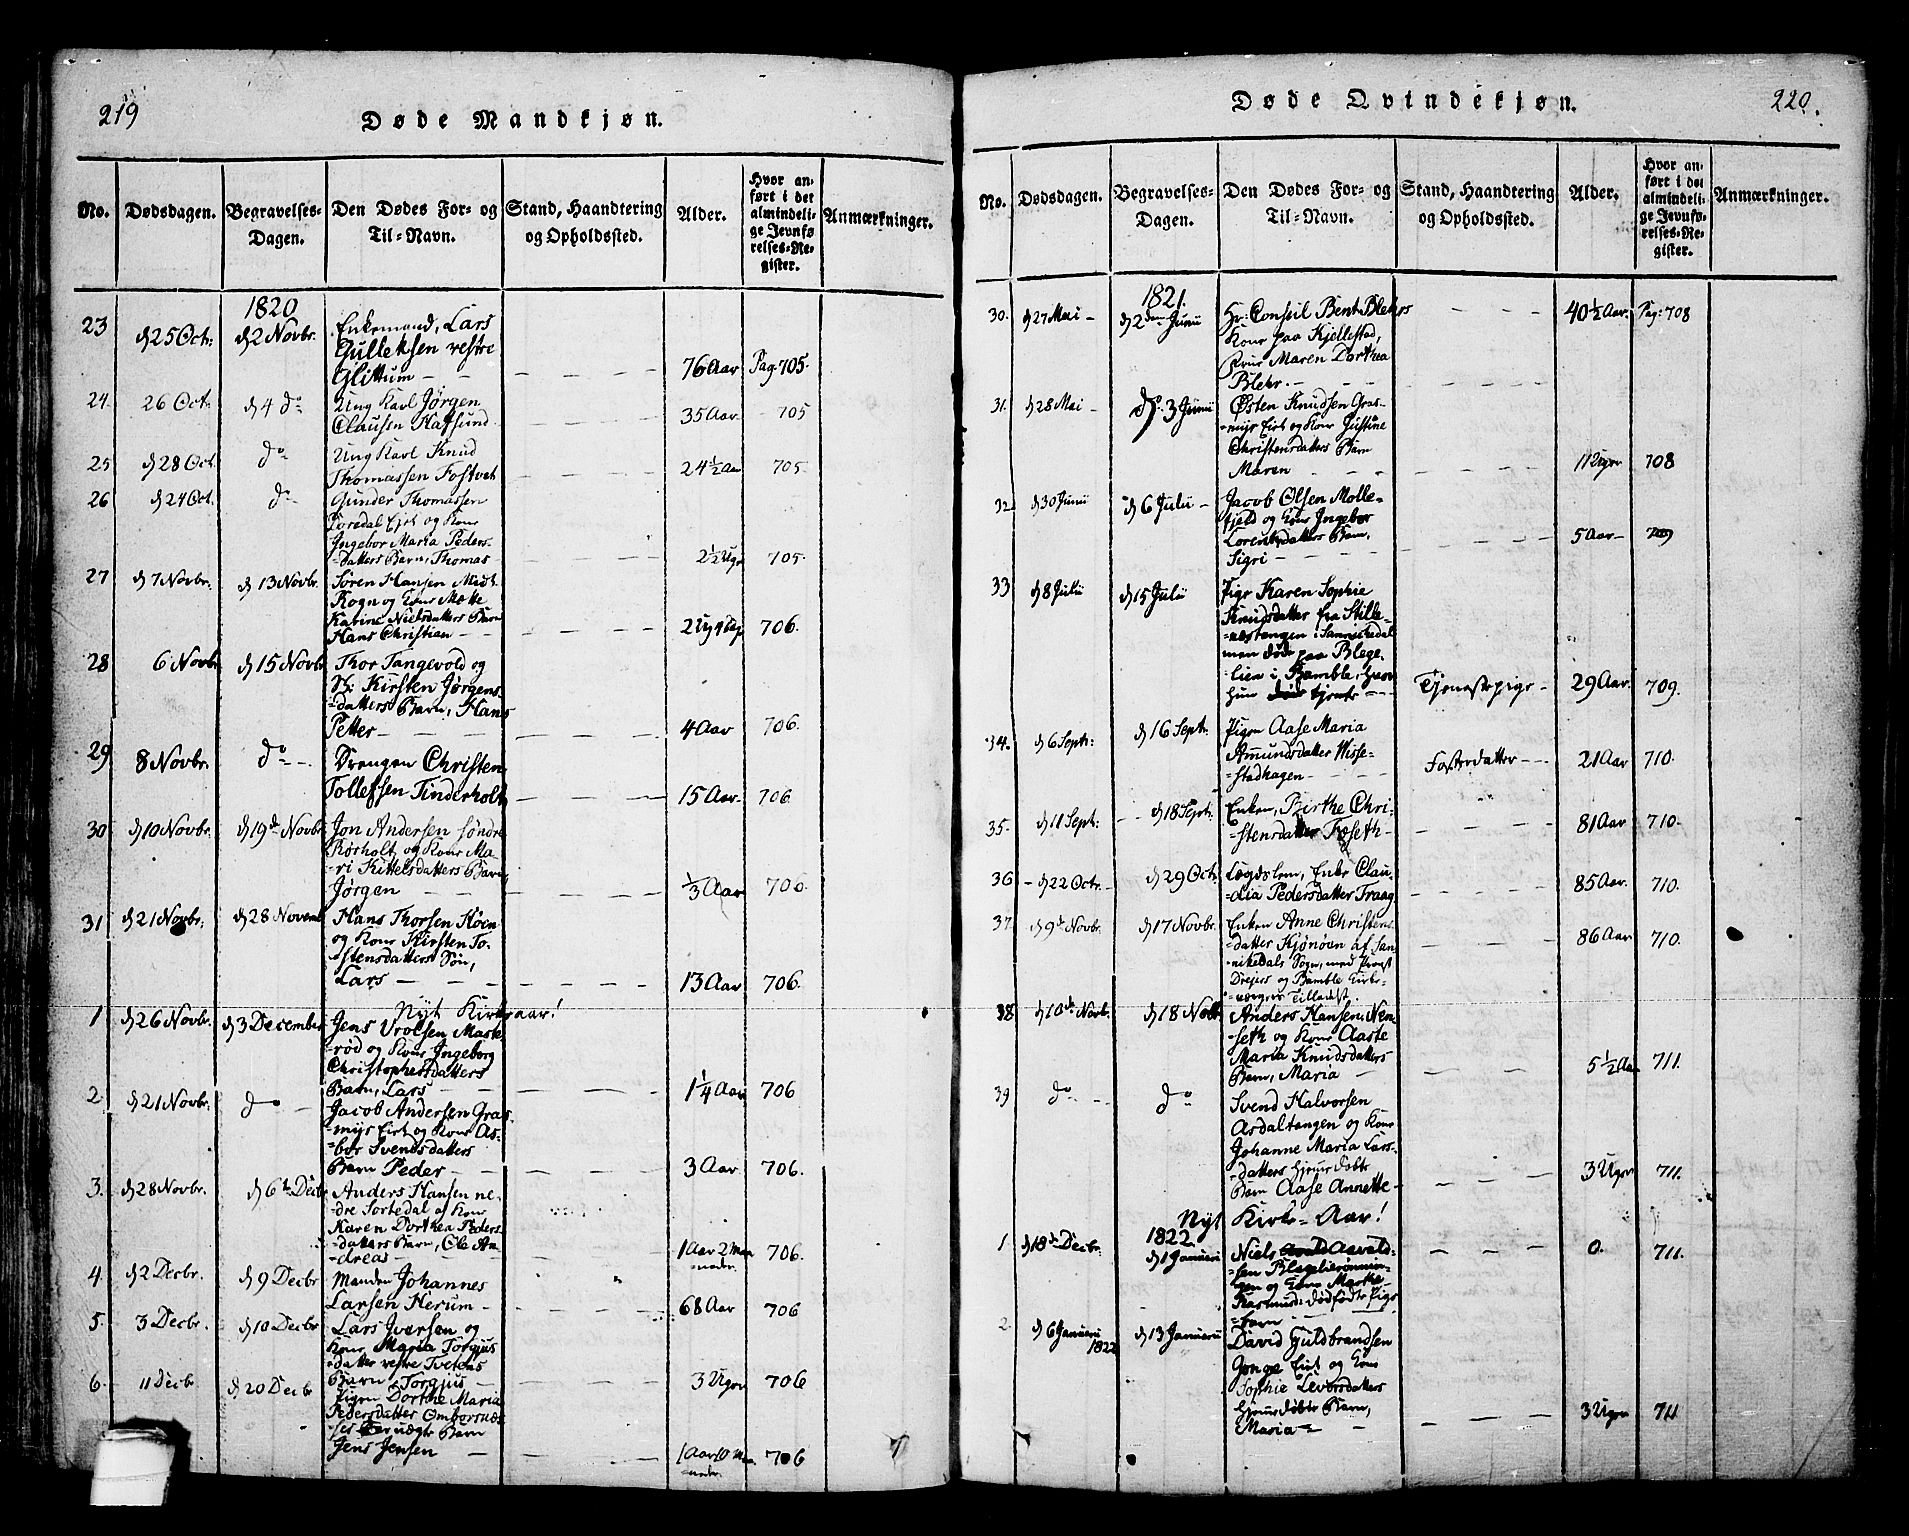 219
Døde Mandkjøn.
No.
Dødsdagen.
Begravelses-
Dagen.
Den Dødes For- og
Til-Navn.
Stand, Haandtering
og Opholdssted.
Alder.
Hvor an-
ført i det
almindeli-
ge Jevnfø-
relses-Re-
gister.
Anmærkninger.
1820
23 d 25 Oct: d 2 Novbr. Enkemand, Lars
Gulleksen vestre
Glittum — — 76 Aar Pag. 705.
24. 26 Oct: d 4 do Ung Karl Jørgen
Clausen Hafsund 35 Aar 705
25 d 28 Oct. do Ung Karl Knud
Thomassen Fostvet 24 ½ Aar 705.
26 d 24 Oct. do Gunder Thomassen
Toredal Ejet og Kone
Ingebor Maria Peders-
datters Barn, Thomas 2½ Ugr 705.
27 d 7 Novbr. d 13 Novbr. Søren Hansen Midt
Rogn og Kone Mette
Karine Nielsdatters Barn
Hans Christian — 2 Ug 4 Dg 706.
28 6 Novbr d 15 Novbr Thor Tangevold og
H: Kirsten Jørgens-
datters Barn, Hans
Petter — 4 Aar 706.
29 8 Novbr. do — Drengen Christen
Tollefsen Tinderholt 15 Aar 706.
30 d 10 Novbr. d 19de Novbr Jon Andersen søndre
Rørholt og Kone Ma-
ri Kittelsdatters Barn,
Jørgen — ⅓ Aar 706.
31 d 21 Novbr. d 28 Novemb Hans Thorsen Høen
og Kone Kirsten To-
stensdatters Søn,
Lars — 13 Aar 706.
Nyt Kirkeaar!
1 d 26 Novbr. d 3 December Jens Wrolsen Maste
rød og Kone Ingeborg
Christophersdatters
Barn, Lars — 1¼ Aar 706
2. d 21 Novbr. do — Jacob Andersen Gras-
myr Eiet og Kone As-
bør Svendsdatters
Barn Peder — 3 Aar 706.
3. d 28 Novbr. d 6te Decbr Anders Hansen ne-
dre Tortedal og Kone
Karen Dorthea Peders
datters Barn, Ole An-
dreas — 1 Aar 2 Maa
neder. 706.
4. d 2 Decbr. d 9 Decbr Manden Johannes
Larsen Herum — 68 Aar 706
5. 3 Decbr. d 10 Decbr Lars Iversen og
Kone Maria Torgjus
datter vestre Tvetens
Barn, Torgjus — 3 Ugr 706
6. 11 Decbr d 20 Decbr Pigen Dorthe Maria
Pedersdatter Ombornæs
ses uægte Barn
Jens Jensen — 1 Aar 10 Maa
neder. 706
220.
Døde Qvindekjøn.
No.
Dødsdagen.
Begravelses-
Dagen.
Den Dødes For- og
Til-Navn.
Stand, Haandtering
og Opholdssted.
Alder.
Hvor an-
ført i det
almindeli-
ge Jevnfø-
relses-Re-
gister.
Anmærkninger.
1821.
30. d 27 Mai — d 2den Junii Hr. Consul Bent Blehrs
Kone paa Kjellestad,
Frue Maren Dorthea
Blehr. — 40½ Aar. Pag: 708
31. d 28 Mai — do. 3 Junii Østen Knudsen Gras-
myr Eiet og Kone Justine
Christensdatters Barn
Maren — 11 Ugr 708
32. d 30 Junii d 6 Julii — Jacob Olsen Molle-
fjeld og Kone Ingebor
Lorentsdatters Barn,
Sigri — 5 Aar — 709
33 d 8 Julii d 15 Julii Pige Karen Sophie
Knudsdatter fra Stille-
næstangen i Sannikedal
men døde paa Blege-
lien i Bamble, hvor
hun tjente — Tjenestepige — 29 Aar. 709.
34. d 6 Septr: d 16 Septr. Pigen Aase Maria
Amundsdatter Wisse-
stadhagen — Fosterdatter — 21 Aar 710.
35. d 11 Septr: d 18 Septr. Enken, Birthe Chri-
stensdatter Træseth — 81 Aar 710.
36 — d 22 Octr. — d 29 Oct. Lægdslem, Enke Clau-
dia Pedersdatter Traag 85 Aar. 710.
37. d 9de Novbr. d 17 Novbr. Enken Anne Christens
datter Kjønøen af San-
nikedals Sogn, med Provst
Drejers og Bamble Kirke-
værgers Tilladst. 86 Aar 710.
38 d 10de Novbr. d 18 Novbr Anders Hansen Nen-
seth og Kone Aaste
Maria Knudsdatters
Barn, Maria — 5½ Aar 711.
39 do — do Svend Halvorsen
Asdaltangen og Kone
Johanne Maria Lars-
datters hjemmedøbte
Barn Aase Annette — 3 Ugr 711.
Nyt Kirke-Aar!
1822
1 d 18de Decbr. d 1 Januarii Niels Aavald-
sen Blegelierønnin-
gen og Kone Marthe
Rasmusd: dødfødte Pige
barn — 0. 711.
2. d 6 Januarii
1822 d 13 Januarii David Guldbrandsen
Gonge Eiet og Kone
Sophie Levorsdatters
hjemmedøbte Barn,
Maria — 3 Ugr 711